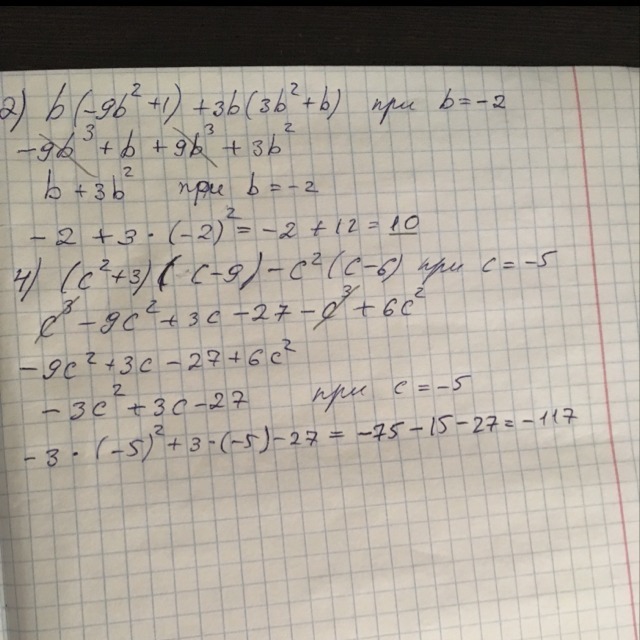 2) b(-9b²+1) + 3b(3b²+b) при b=-2
-9b³ + b + 9b³ + 3b²
b + 3b² при b=-2
-2 + 3·(-2)² = -2 + 12 = 10
4) (c²+3)(c-9) - c²(c-6) при c=-5
c³ - 9c² + 3c - 27 - c³ + 6c²
-9c² + 3c - 27 + 6c²
-3c² + 3c - 27 при c=-5
-3·(-5)² + 3·(-5) - 27 = -75 - 15 - 27 = -117